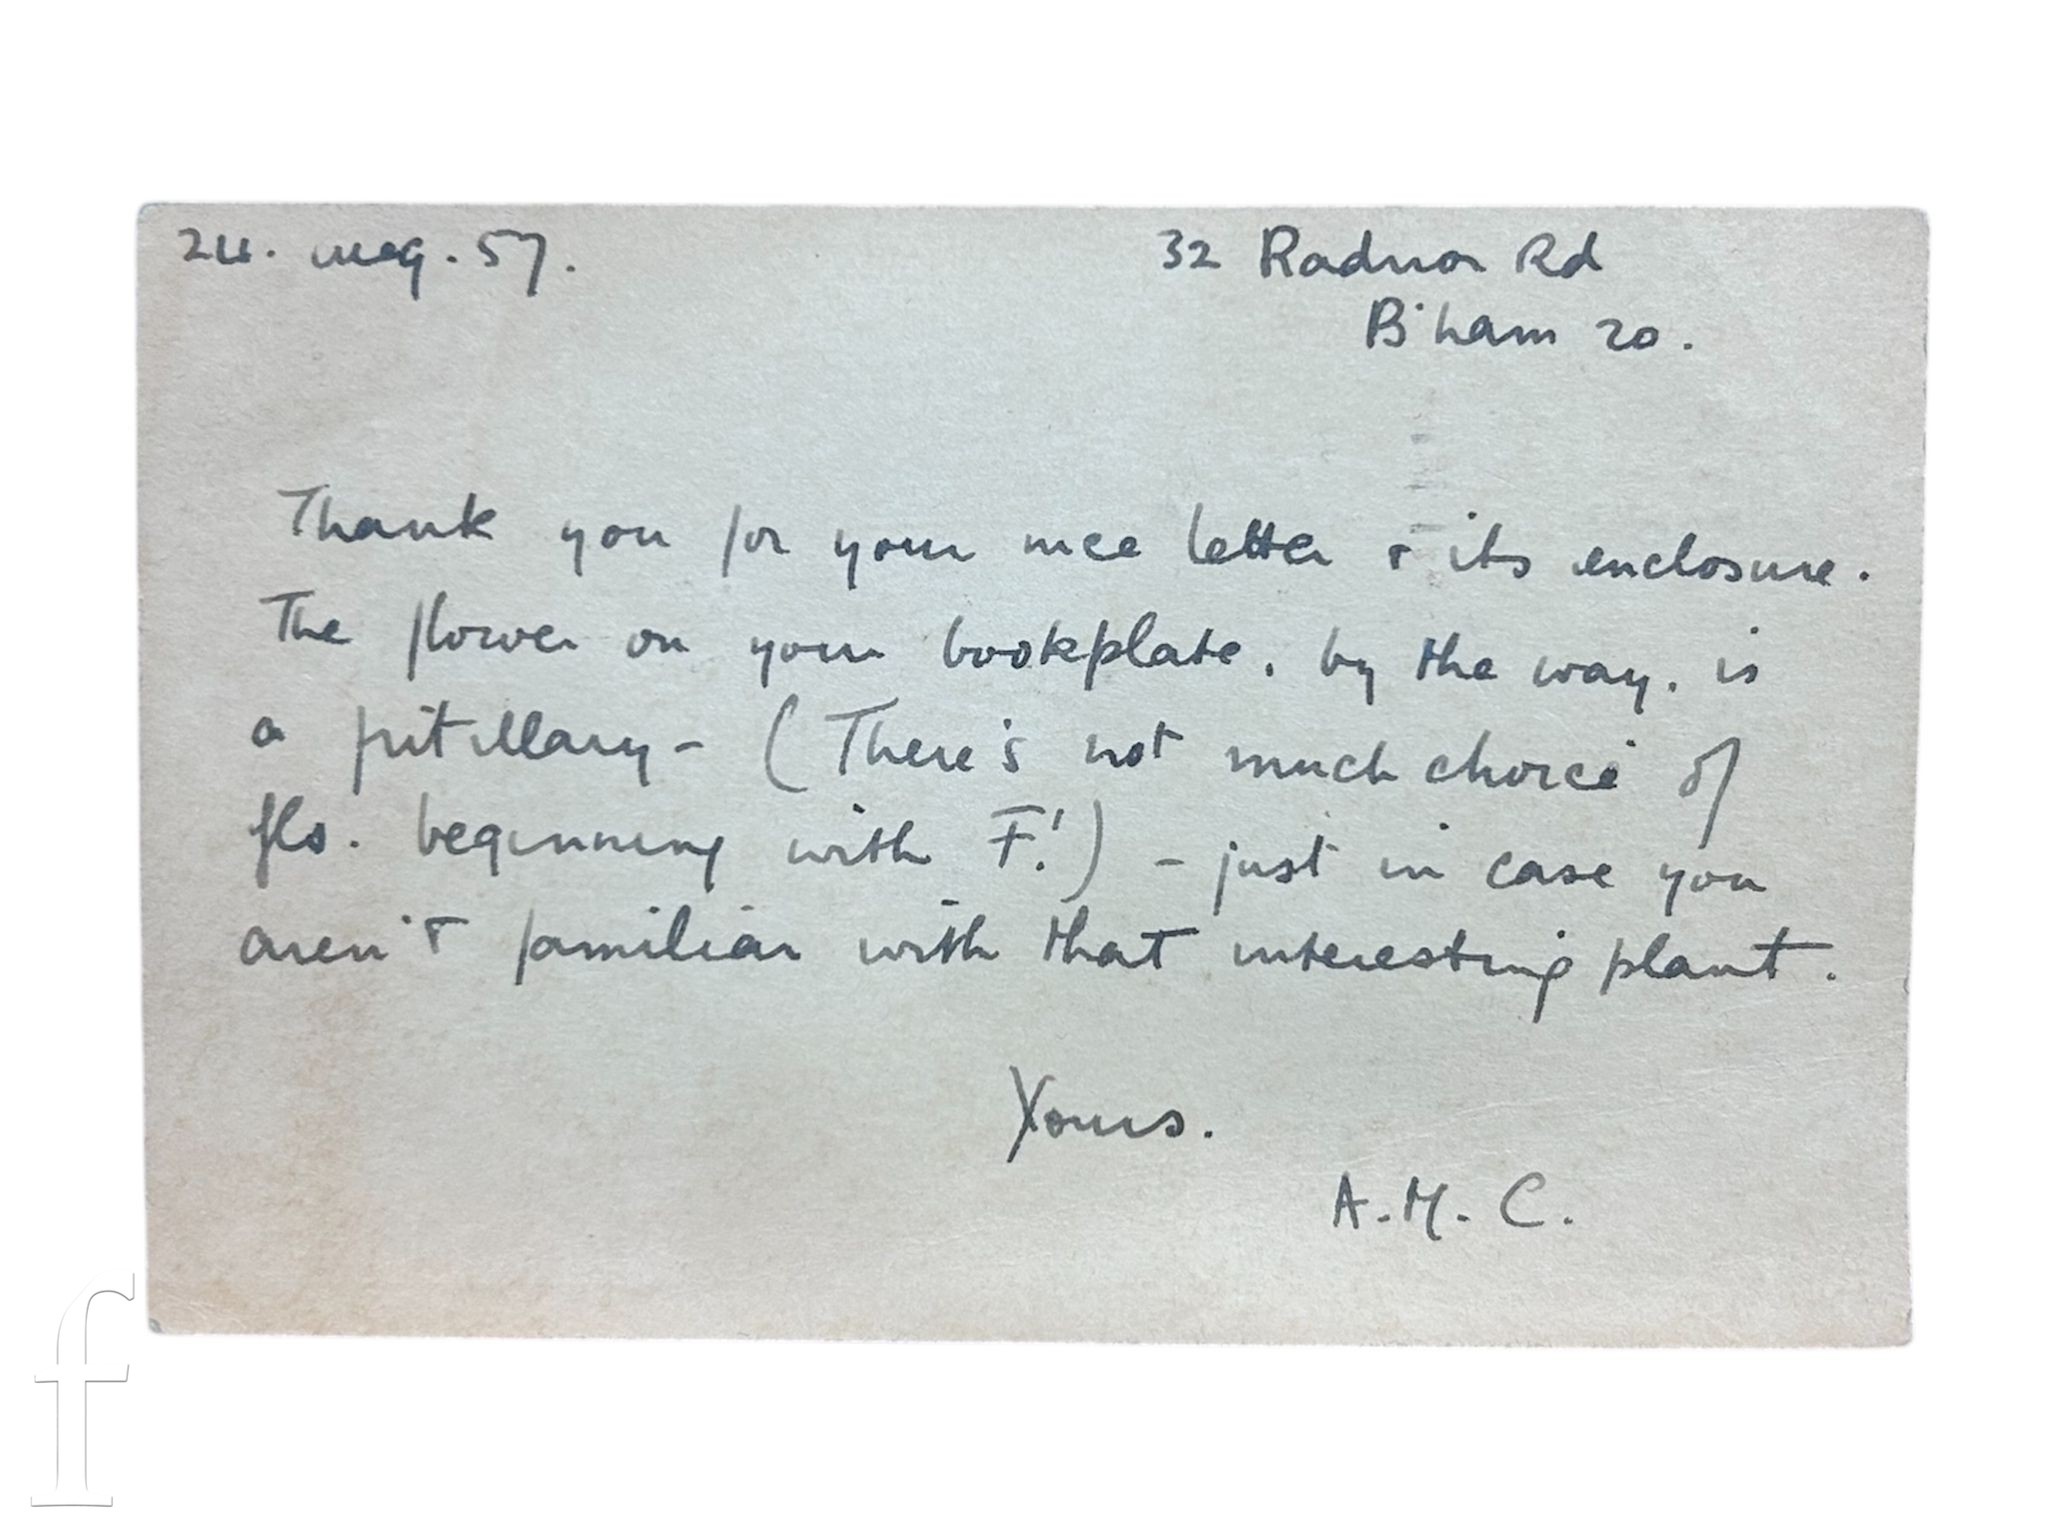 24. May. 57.
32 Radnor Rd
B'ham 20.
Thank you for your nice letter & its enclosure.
The flower on your bookplate, by the way, is
a fritillary – (There's not much choice of
fls. beginning with F!) – just in case you
aren't familiar with that interesting plant.
Yours.
A. M. C.
f